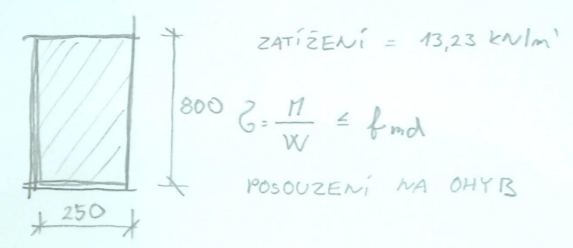 ZATÍŽENÍ = 13,23 kN/m'
800
σ = M/W ≤ fmd
POSOUZENÍ NA OHYB
250